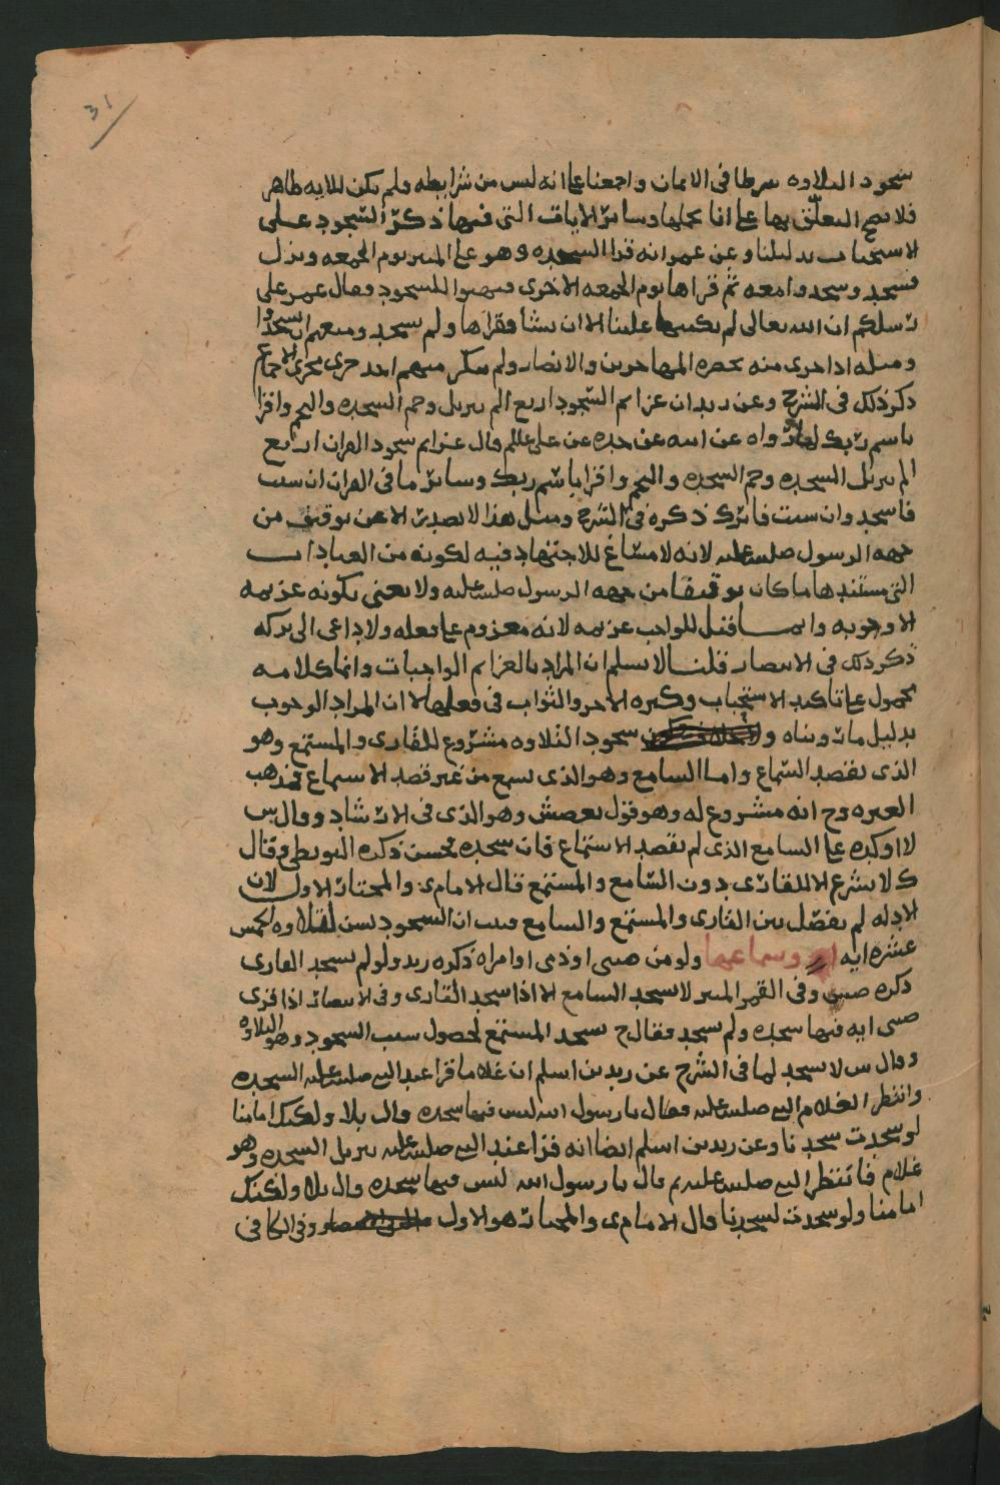 ٣١
سجود التلاوه شرطا في الايمان واجمعنا على انه ليس من شرايطه ولم يكن للايه ظاهر
فلا يصح التعلق بها على انا نحملها وسائر الايات التي فيها ذكر السجود على
الاستحباب بدليلنا وعن عمر انه قرا السجده وهو على المنبر يوم الجمعه ونزل
فسجد وسجدوا معه ثم قراها يوم الجمعه الاخرى فتهيوا للسجود فقال عمر على
رسلكم ان الله تعالى لم يكتبها علينا الا ان نشا فقراها ولم يسجد ومنعهم ان يسجدوا
ومثله اذا جرى منه بحضره المهاجرين والانصار ولم ينكر منهم احد جرى مجرى الاجماع
ذكر ذلك في الشرح وعن زيد ان عزايم السجود اربع الم تنزيل وحم السجده والنجم واقرا
باسم ربك لما رواه عن ابيه عن جده عن علي علىلم قال عزايم سجود القران اربع
الم تنزيل السجده وحم السجده والنجم واقرا باسم ربك وسائر ما في القران ان شيت
فاسجد وان شيت فاترك ذكره في الشرح ومثل هذا لا يصدر الا عن توقيف من
جهه الرسول صلى الله عليه لانه لا مساغ للاجتهاد فيه لكونه من العبادات
التي مستندها ما كان توقيفا من جهه الرسول صلى الله عليه ولا يعنى بكونه عزيمه
الا وجوبه وانما قيل للواجب عزيمه لانه معزوم على فعله ولا داعي الى تركه
ذكر ذلك في الانتصار قلنا لا نسلم ان المراد بالعزايم الواجبات وانما كلامه
محمول على تاكيد الاستحباب وكثره الاجر والثواب في فعلها لا ان المراد الوجوب
بدليل ما رويناه سجود التلاوه مشروع للقارى والمستمع وهو
الذي يقصد السماع واما السامع وهو الذي يسمع من غير قصد الاستماع فمذهب
العتره وح انه مشروع له وهو قول بعصش وهو الذي في الارشاد وقال س
لا اوكده على السامع الذي لم يقصد الاستماع فان سجده فحسن ذكره البويطي وقال
ك لا يشرع الا للقارى دون السامع والمستمع قال الامام ى والمختار الاول لان
الادله لم يفصل بين القارى والمستمع والسامع فثبت ان السجود يسن لتلاوه الخمس
عشره ايه او وسماعها ولو من صبى او ذمى او امراه ذكره زيد ولو لم يسجد القارى
ذكره وفي القمر المنير لا يسجد السامع الا اذا سجد القارى وفي الانتصار اذا قرى
صبى ايه فيها سجده ولم يسجد فقال ح يسجد المستمع لحصول سبب السجود وهو التلاوه
وقال س لا يسجد لما في الشرح عن زيد بن اسلم ان غلاما قرا عند النبي صلى الله عليه السجده
وانتظر الغلام النبي صلى الله عليه فقال يا رسول الله ليس فيها سجده قال بلا ولكنك امامنا
لو سجدت سجدنا وعن زيد بن اسلم ايضا انه قرا عند النبي صلى الله عليه تنزيل السجده وهو
غلام فانتظر النبي صلى الله عليه ثم قال يا رسول الله ليس فيها سجده قال بلا ولكنك
امامنا ولو سجدت لسجدنا قال الامام ى والمختار هو الاول وفي الكافي